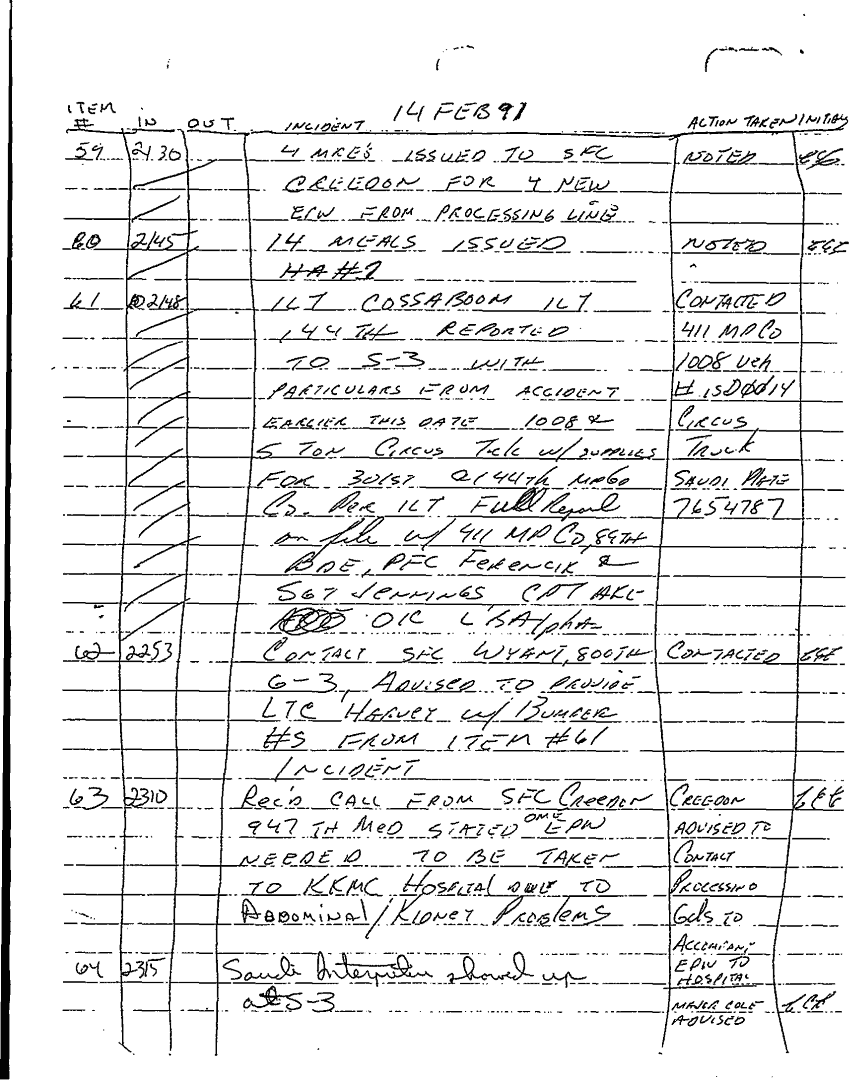 14 FEB 91
ITEM # IN OUT INCIDENT ACTION TAKEN INITIALS
59 2130 4 MRE'S ISSUED TO SFC NOTED
CREEDON FOR 4 NEW
EPW FROM PROCESSING LINE
60 2145 14 MEALS ISSUED NOTED
HA #7
61 2148 1LT COSSABOOM 1LT CONTACTED
144TH REPORTED 411 MP CO
TO S-3 WITH 1008 Veh
PARTICULARS FROM ACCIDENT
EARLIER THIS DATE 1008 & CIRCUS
5 TON CIRCUS Tck w/ SUPPLIES TRUCK
FOR 301ST 144th SAUDI PLATE
Co. Per 1LT Full Report 7654787
on file w/ 411 MP CO, 89TH
BDE, PFC FERENCIK &
SGT JENNINGS CPT
OIC
62 2253 CONTACT SFC WYANT, 800TH CONTACTED
G-3, ADVISED TO PROVIDE
LTC HARVEY w/ BUMPER
#S FROM ITEM #61
INCIDENT
63 2310 REC'D CALL FROM SFC CREEDON CREEDON
947TH MED STATED ONE EPW ADVISED TO
NEEDED TO BE TAKEN CONTACT
TO KKMC HOSPITAL DUE TO PROCESSING
ABDOMINAL/KIDNEY PROBLEMS Gds TO
ACCOMPANY
64 2315 Saudi Interpreter showed up EPW TO
HOSPITAL
at S-3 MAJOR COLE
ADVISED